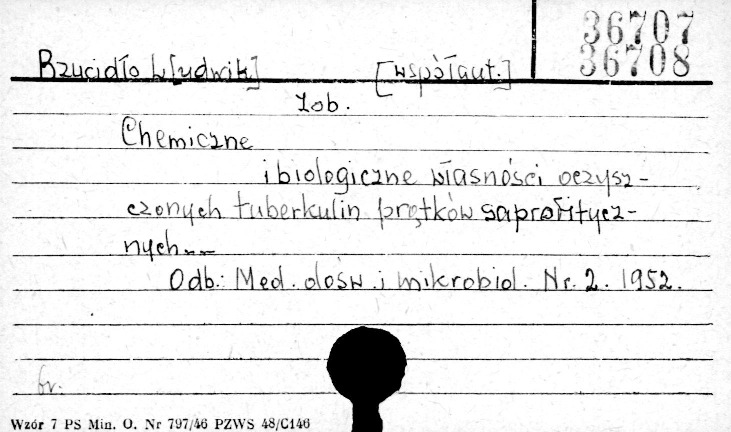 36707
36708
Rzucidło L[udwik] [współaut.]
zob.
Chemiczne
i biologiczne własności oczysz-
czonych tuberkulin prątków saprofitycz-
nych...
Odb.: Med. dośw. i mikrobiol. Nr. 2. 1952.
br.
Wzór 7 PS Min. O. Nr 797/46 PZWS 48/C146